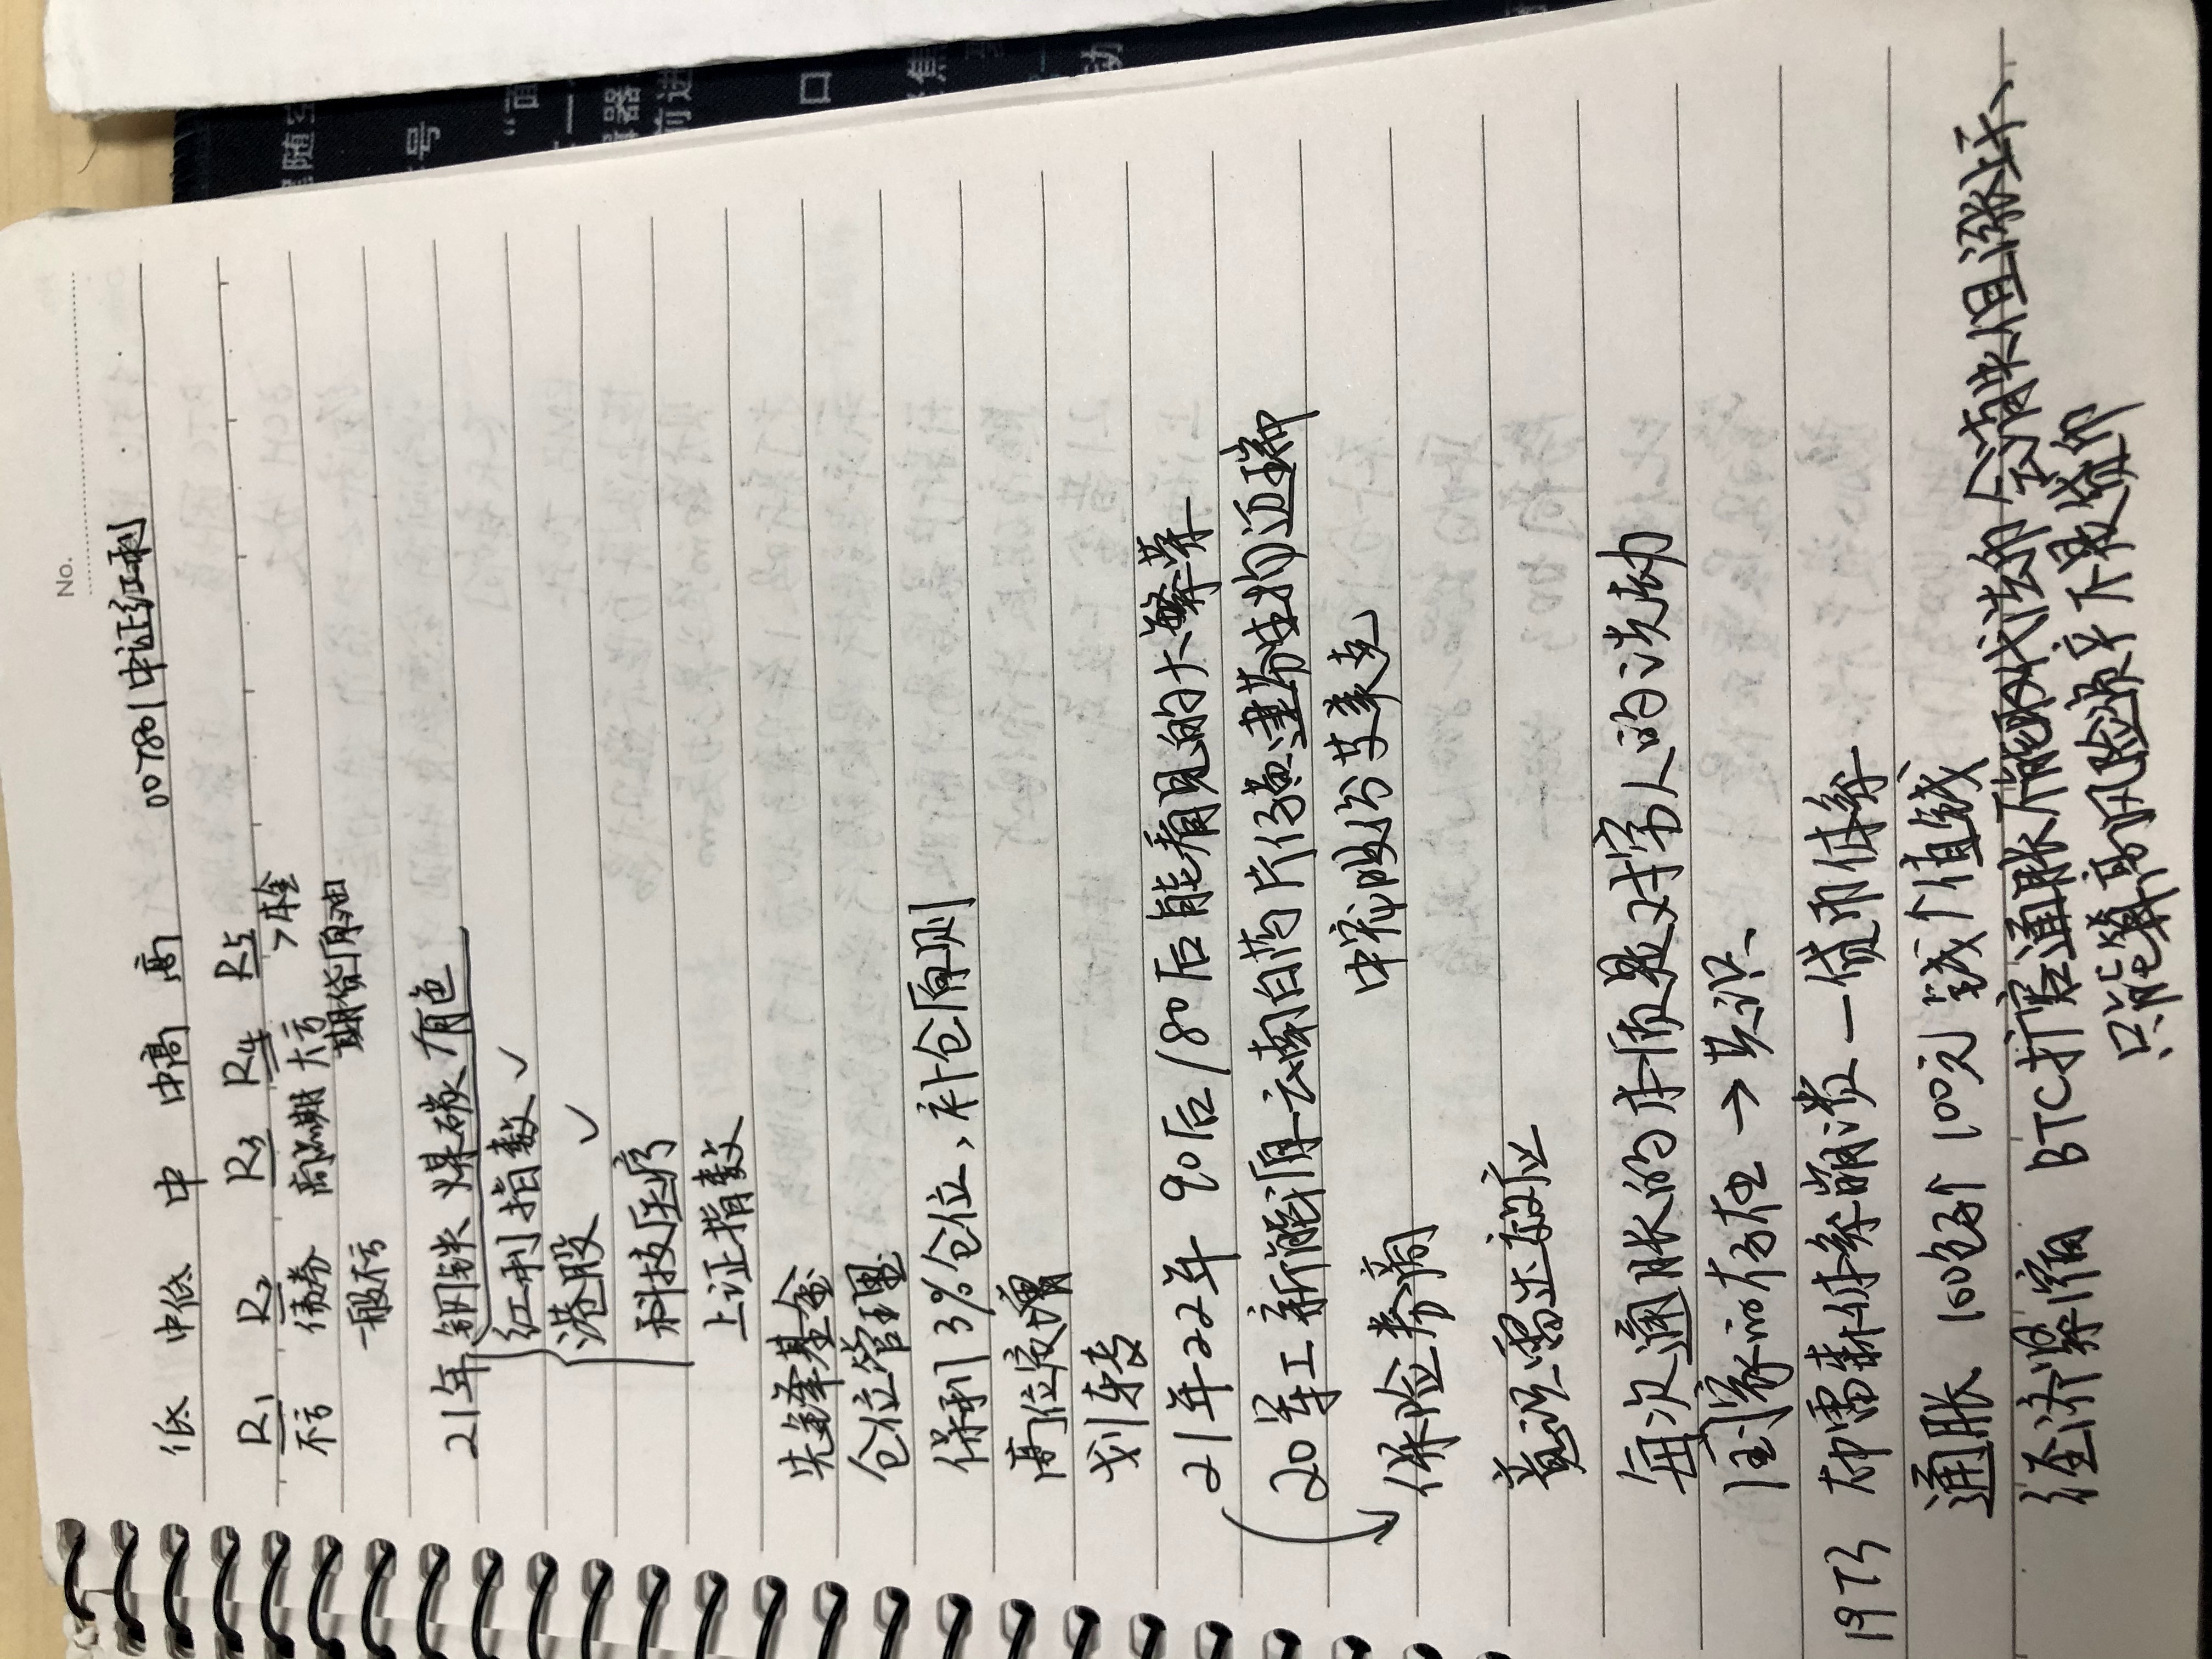 No.
低 中低 中 中高 高 007801中证红利
R1 R2 R3 R4 R5
不亏 债券 商品期 大亏 >本金
一般不亏 期货原油
21年 钢铁 煤碳 有色
红利指数 ✓
港股 ✓
科技医疗
上证指数
先锋基金
仓位管理
保利 3%仓位、补仓原则
高位定增
划转
21年22年 90后/80后能看见的大繁荣
20军工新能源云南白药片仔黄 生物迈瑞
中宠股份艾美克
保险券商
意识雷达效应
每次通胀的本质是对穷人的洗劫
国家的存在→共识
1973 布雷森体系崩溃—货币体系
通胀 100包子↑ 100元 钱↑值钱
经济紧缩 BTC扩容通胀不能取代法币 会消失但涨
只能算高风险资产不是货币
随空
号
“面
器
前进
口
焦
动